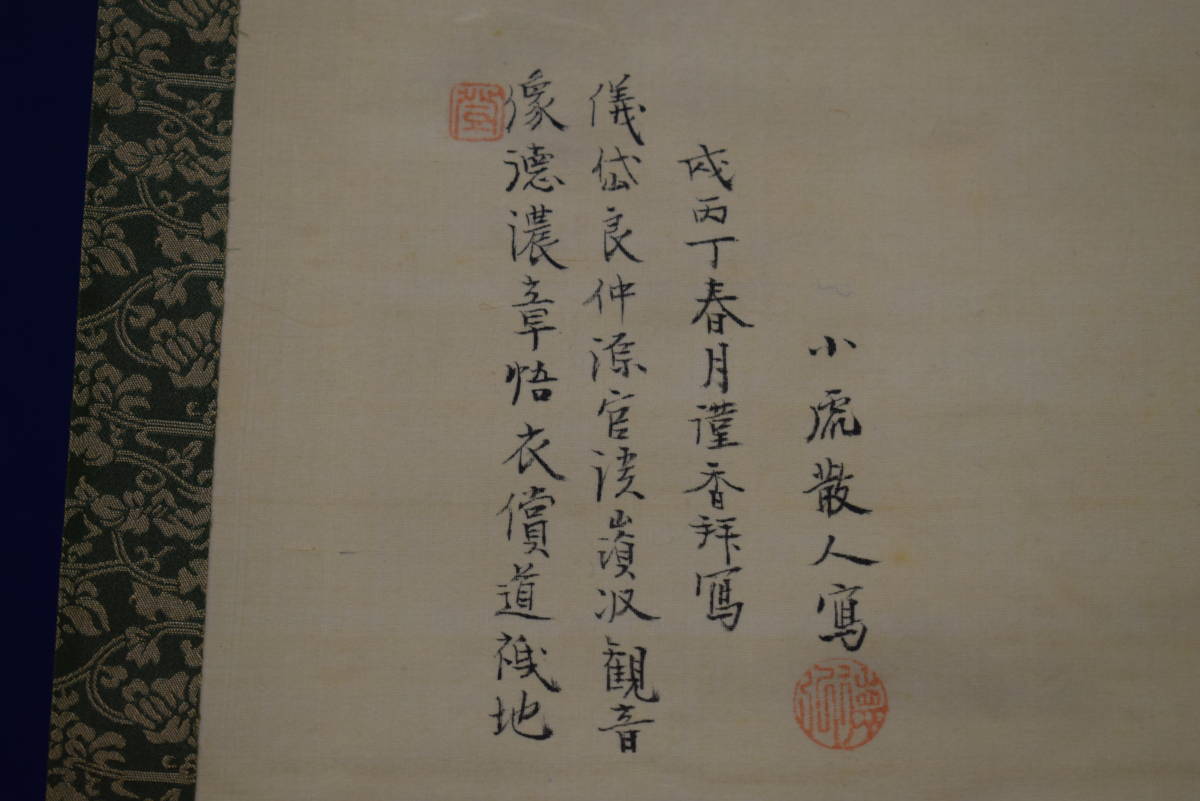 小虎散人寫
戊丙丁春月謹香拜寫
儀岱良仲源官渓嶺汲観音
像德濃章悟衣償道祇地